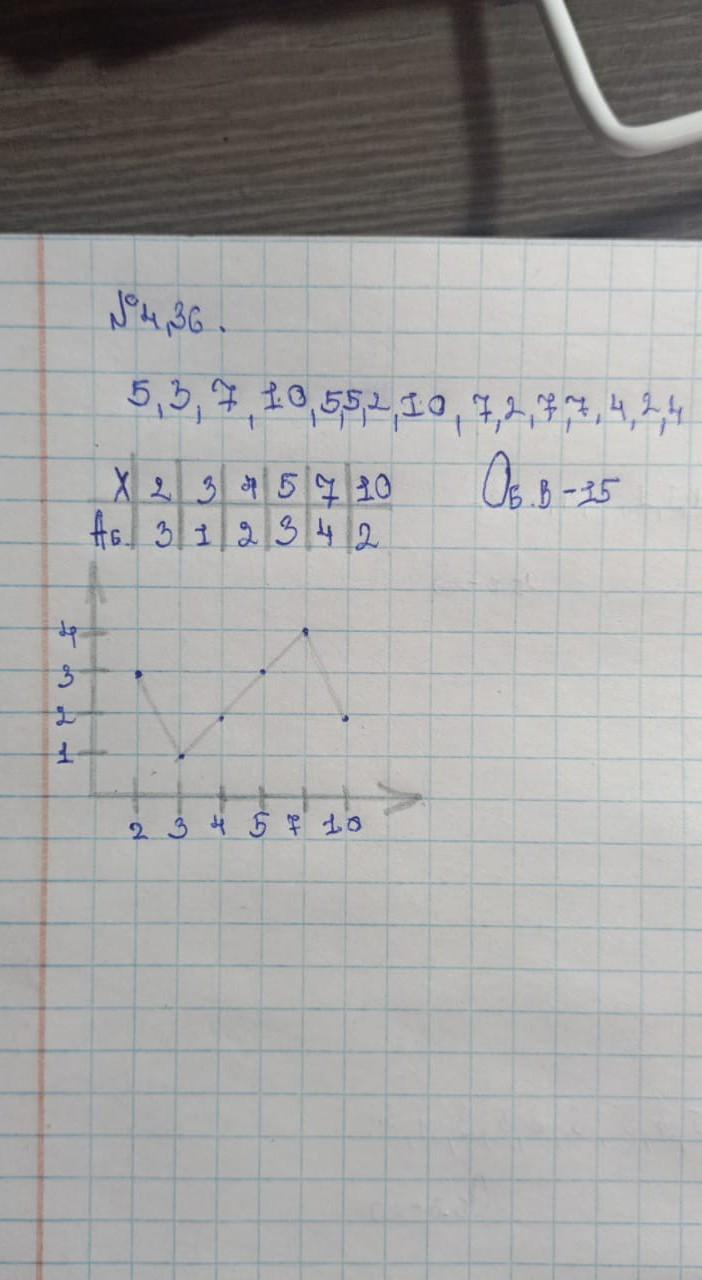 №4,36.
5,3,7,10,5,5,2,10,7,2,7,7,4,2,4
X 2 3 4 5 7 10
Аб. 3 1 2 3 4 2
Об.В-15
4
3
2
1
2 3 4 5 7 10